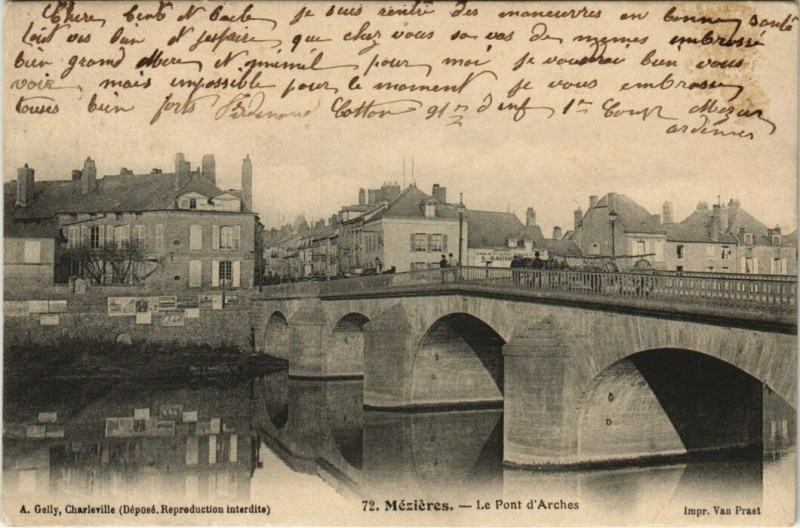 Chere je suis rentré des manœuvres en bonne santé
tout vas bien et j'espaire que chez vous sa vas de memes embrassé
bien grand Mere et pour moi je voudrai bien vous
voir mais impossible pour le moment je vous embrasse
touses bien forts Ferdinand Cotton 91e d'inf 1re Comp Mezier
ardennes
A. Gelly, Charleville (Déposé. Reproduction interdite)
72. Mézières. — Le Pont d'Arches
Impr. Van Praet